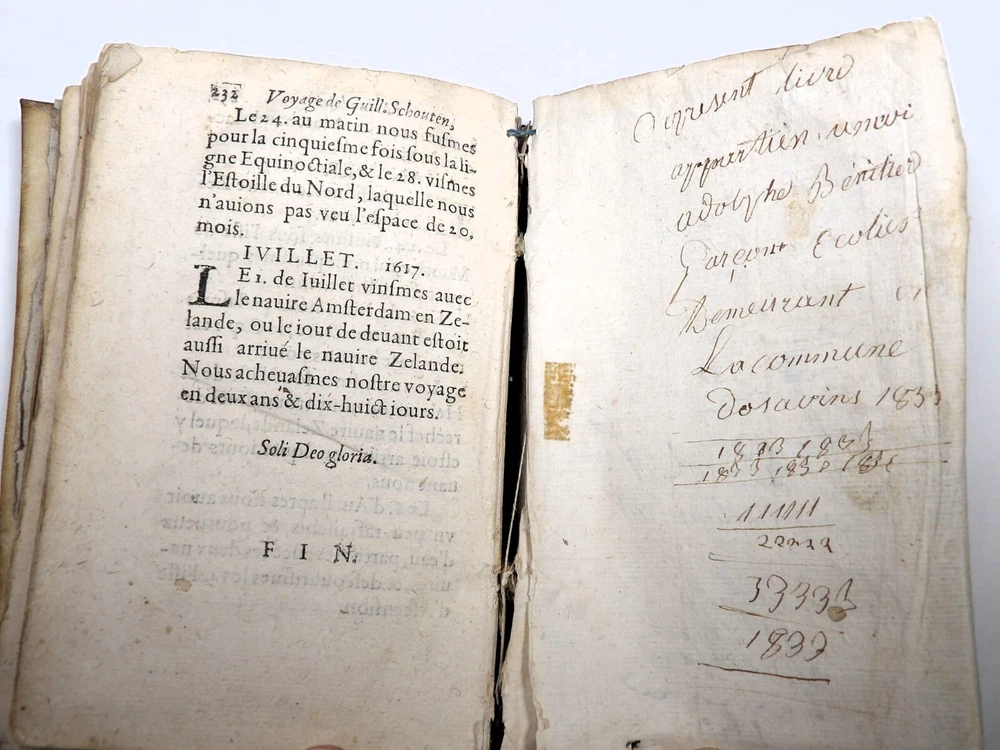 232 Voyage de Guill. Schouten,
Le 24. au matin nous fuſmes
pour la cinquieſme fois ſous la li-
gne Equinoctiale, & le 28. viſmes
l'Eſtoille du Nord, laquelle nous
n'auions pas veu l'eſpace de 20.
mois.
IVILLET. 1617.
LE 1. de Iuillet vinſmes auec
le nauire Amſterdam en Ze-
lande, ou le iour de deuant eſtoit
auſſi arriué le nauire Zelande.
Nous acheuaſmes noſtre voyage
en deux ans & dix-huict iours.
Soli Deo gloria.
F I N.
present livre
appartien
adolphe
Garçont Ecolier
Demeurant
La commune
dosavins 1833
1833 1833
11111
22222
1833